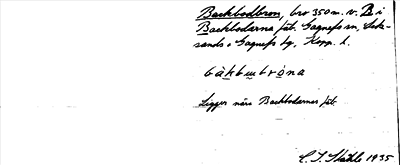 Backbodbron, bro 350 m. v. B i
Backbodarna fäb. Gagnefs sn, Lek-
sands o Gagnefs tg. Kopp. l.
bàkbωbròna
Ligger nära Backbodarnas fäb.
C. I. Ståhle 1935